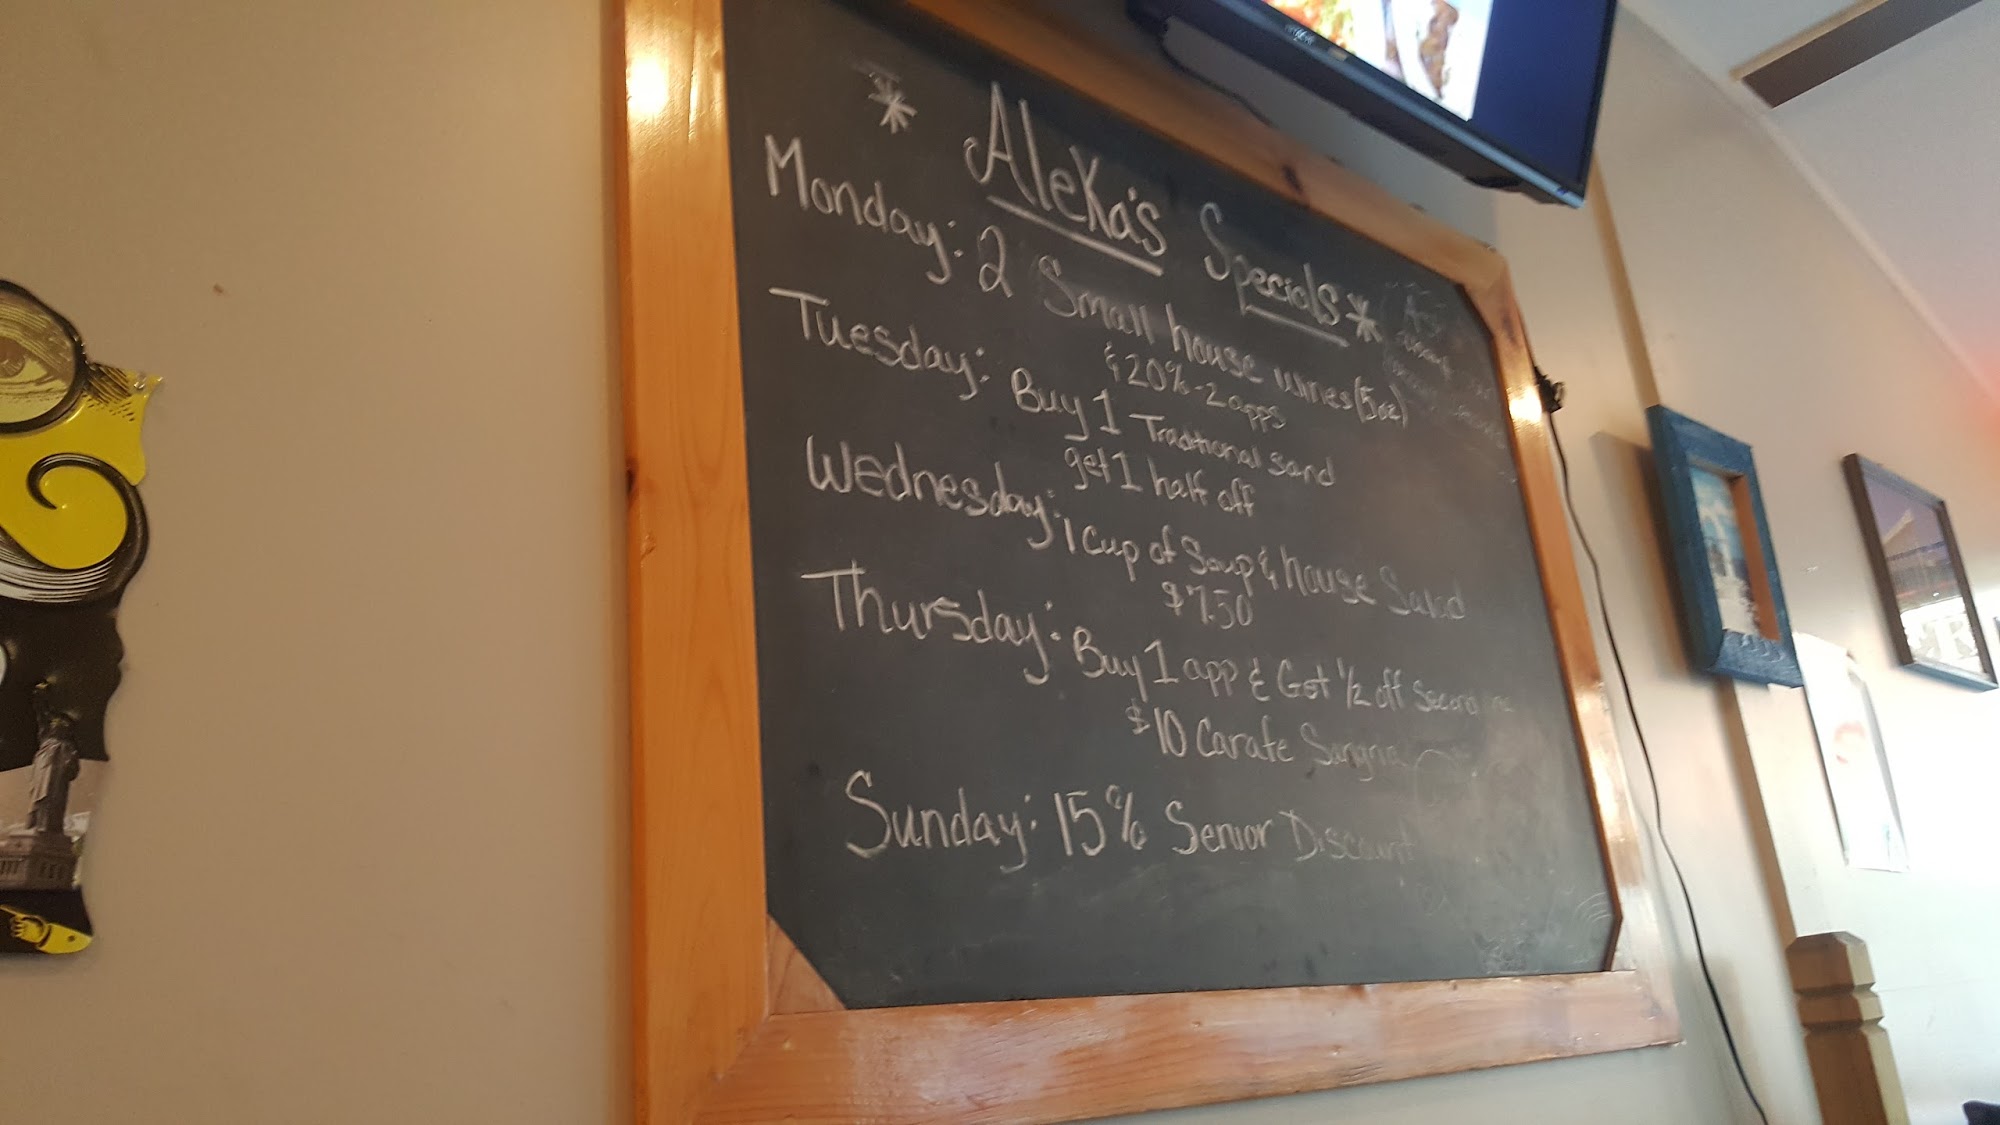 * Aleka's Specials *
Monday: 2 Small house wines (5oz)
& 20% - 2 apps
Tuesday: Buy 1 Traditional Sand
get 1 half off
Wednesday: 1 Cup of Soup & house Salad
$7.50
Thursday: Buy 1 app & Get 1/2 off Second
$10 Carafe Sangria
Sunday: 15% Senior Discount